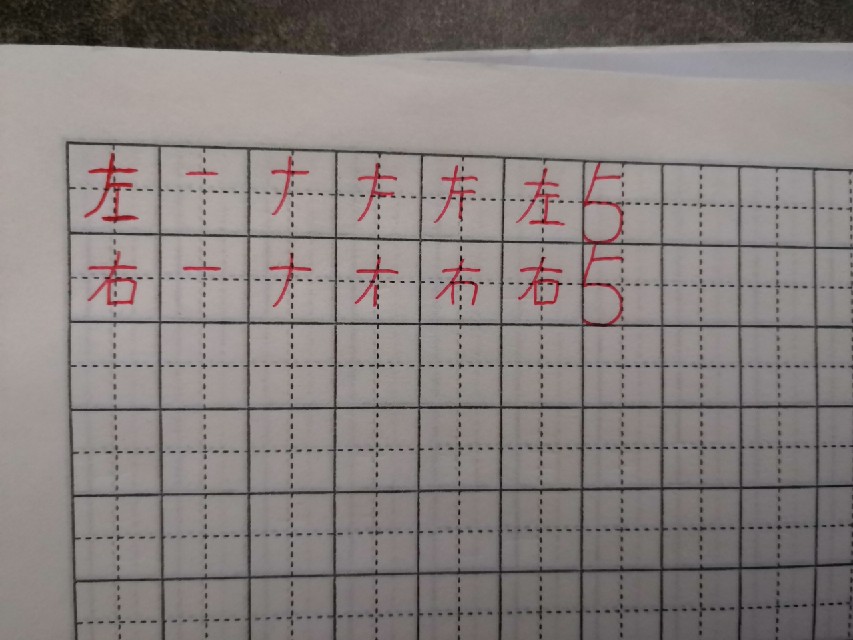 左 一 ナ 𠂇 左 5
右 一 ナ 右 5